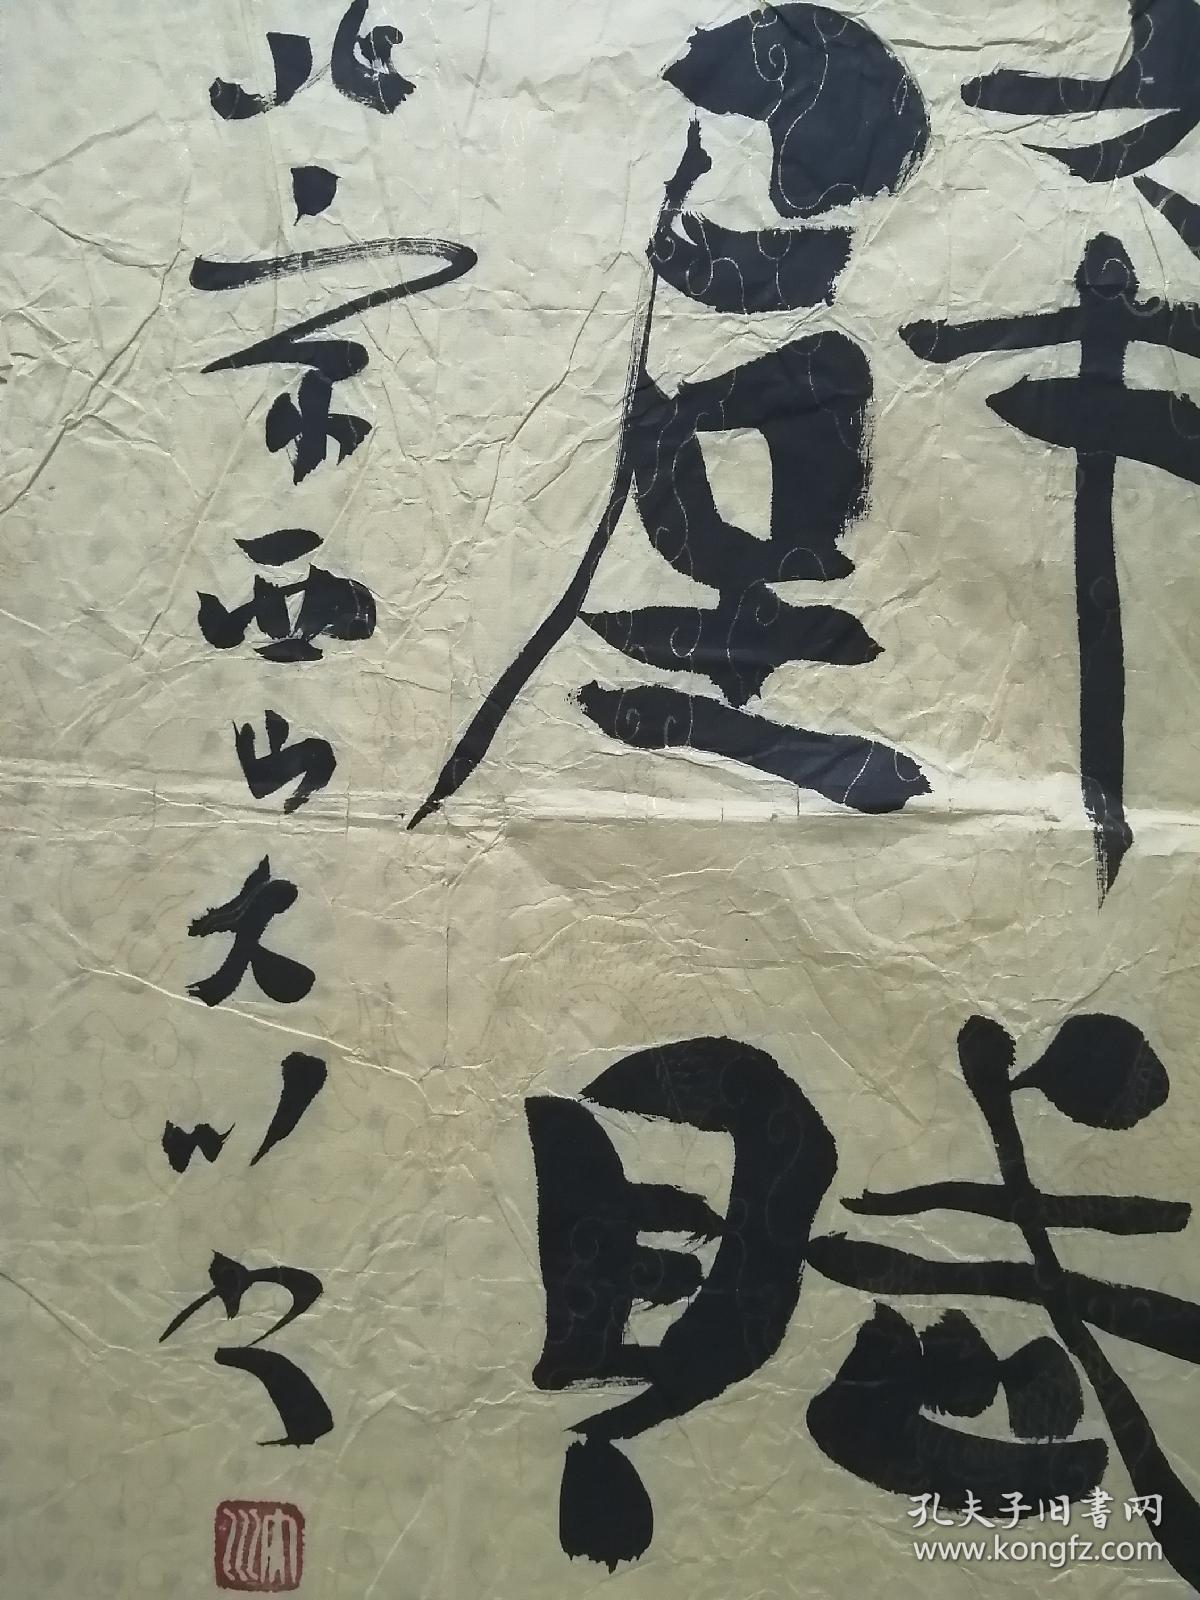 賦
北京西山大川书
大川
孔夫子旧書网
www.kongfz.com